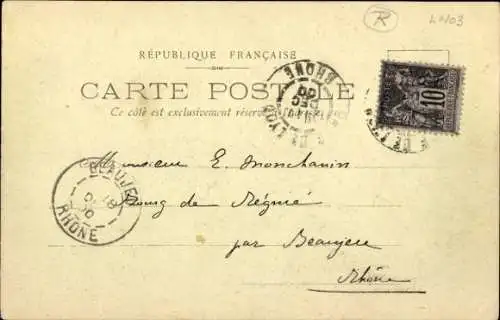 R
RÉPUBLIQUE FRANÇAISE
CARTE POSTALE
Ce côté est exclusivement réservé
10
RHONE
Monsieur E. Monchanin
Bourg de Régnié
par Beaujeu
Rhône
BEAUJEU
RHONE